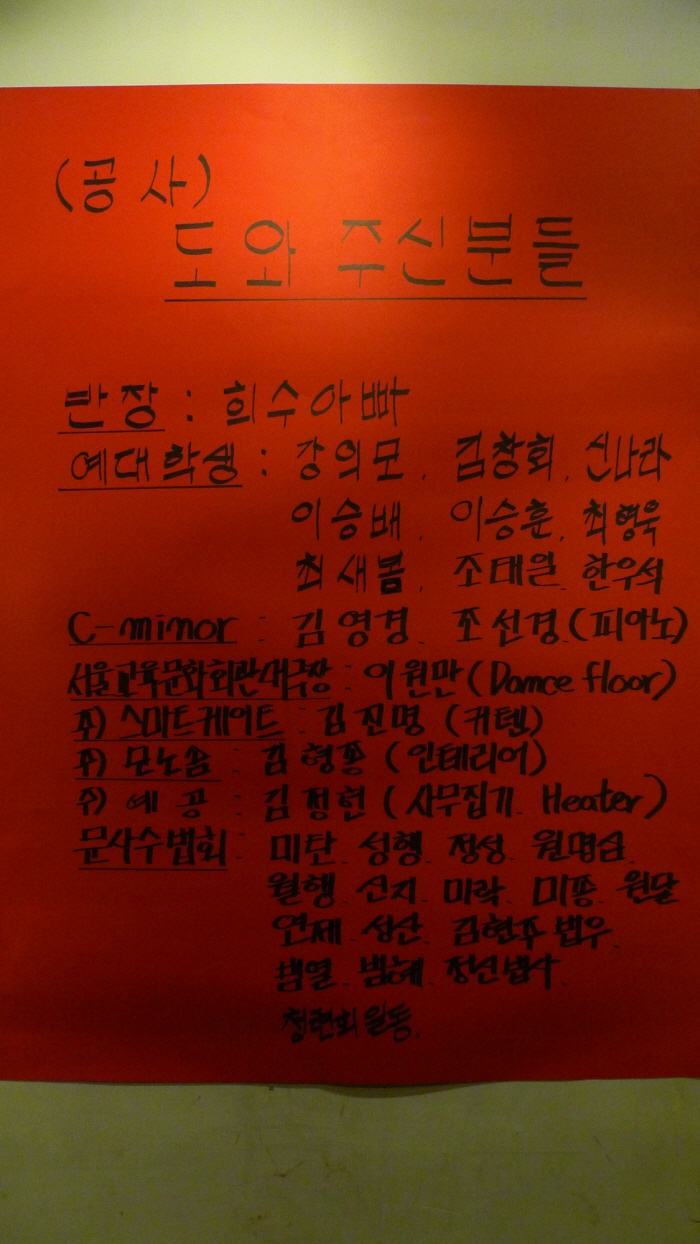 (공 사)
도와 주신분들
반장 : 희수아빠
예대학생 : 강의모. 김창회. 신나라
이승배. 이승훈. 최형욱
최새봄. 조태일. 한우석
C-minor : 김영경. 조선경. (피아노)
서울교육문화회관대극장 : 이원만 (Dance floor)
주) 스마트게이트 : 김진명 (커텐)
주) 모노솜 : 김형종 (인테리어)
주) 예공 : 김정현 (사무집기. Heater)
문사수법회 : 미탄. 성행. 정성. 원명심.
월행. 선지. 미락. 미종. 원달
연제. 성산. 김현주 법우.
범열. 범혜. 정신법사.
청련회일동.